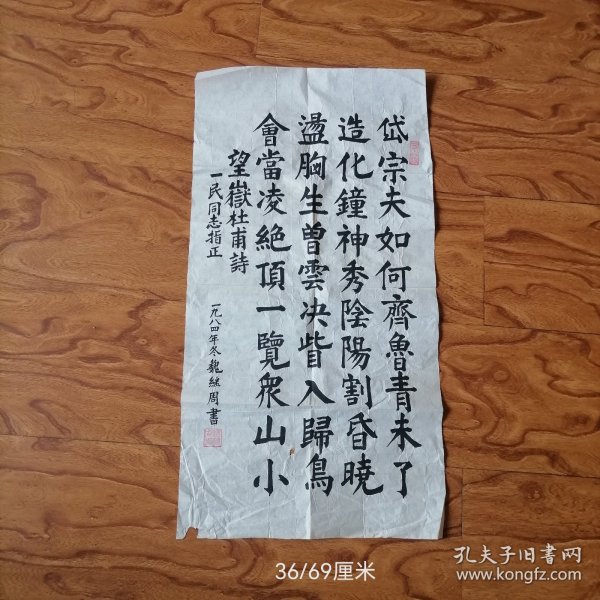 岱宗夫如何齊魯青未了
造化鐘神秀陰陽割昏曉
盪胸生曾雲决眥入歸鳥
會當凌絕頂一覽眾山小
望嶽杜甫詩
一民同志指正
一九八四年冬魏繼周書
36/69厘米
孔夫子旧书网
www.kongfz.com